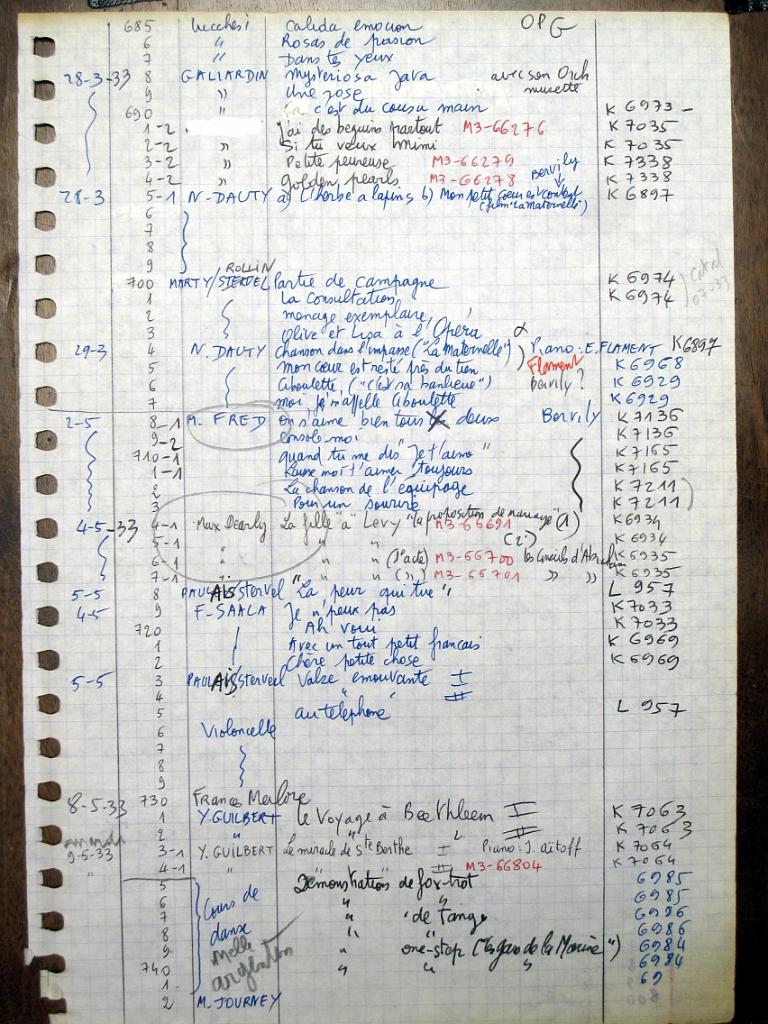 685 Lucchesi Calida emocion OPG
6 " Rosas de pasion
7 " Dans tes yeux
28-3-33 8 GALIARDIN Mysteriosa Java avec son Orch musette
9 " Une rose
690 " Ça c'est du cousu main K 6973 -
1-2 J'ai des beguins partout M3-66276 K 7035
2-2 " Si tu veux Mimi K 7035
3-2 " Petite peureuse M3-66279 K 7338
4-2 " Golden pearls M7-66278 K 7338
28-3 5-1 N. DAUTY a) L'herbe a lapins b) Mon petit coeur est content (film "la Maternelle") Bervily K 6897
6
7
8
9
700 MARTY/STERVEL ROLLIN Partie de campagne K 6974
1 La Consultation K 6974
2 menage exemplaire
3 Olive et Lisa à l'Opéra
29-3 4 N. DAUTY Chanson dans l'impasse ("La Maternelle") Piano: E. FLAMENT K 6897
5 mon coeur est resté près du tien Flament K 6968
6 Ciboulette, ("c'est sa banlieue") bervily? K 6929
7 moi je m'appelle Ciboulette K 6929
2-5 8-1 M. FRED on s'aime bien tous deux Bervily K 7136
9-2 console-moi K 7136
710-1 quand tu me dis "Je t'aime" K 7165
1-1 Laisse moi t'aimer toujours K 7165
2 La chanson de l'equipage K 7211
3 Pour un sourire K 7211
4-5-33 4-1 Max Dearly La fille "à" Levy "la proposition de mariage" (1) M3-66691 K 6934
5-1 " " " (2) K 6934
6-1 " " " (1e acte) M3-66700 les Conseils d'Abraham K 6935
7-1 " " " (") M3-66701 " " K 6935
5-5 8 PAULAIS/Stervel "La peur qui tue" L 957
4-5 9 F-SAALA Je n'peux pas K 7033
720 Ah voui K 7033
1 Avec un tout petit francais K 6969
2 Chère petite chose K 6969
5-5 3 PAULAIS/Stervel Valse emouvante I
4 " " II
5 au telephone L 957
6 Violoncelle
7
8
9
8-5-33 730 France Merlore
1 Y. GUILBERT Le Voyage à Bethleem I K 7063
2 " " II K 7063
9-5-33 3-1 Y. GUILBERT Le miracle de Ste Berthe I Piano: J. aitoff K 7064
" 4-1 " II M3-66804 K 7064
5 Cours de danse Demonstration de fox-trot 6985
6 " " 6985
7 " de Tango 6986
8 " " 6986
9 " one-step ("les gars de la Marine") 6984
740 " " " 6984
1 69
2 M. JOURNEY